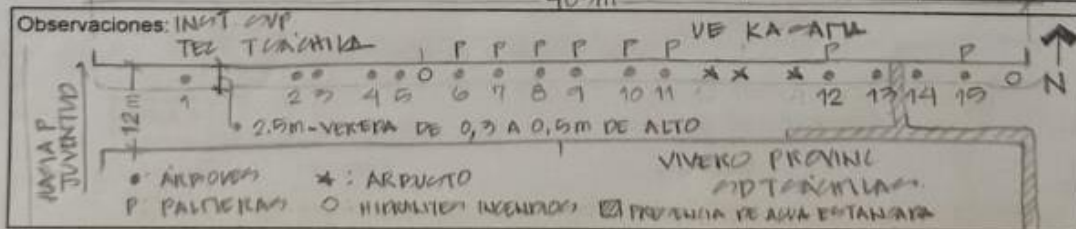 40 m
Observaciones: INST SUP
TEC TSACHILA
UE KASAMA
P P P P P P P P
N
1 2 3 4 5 6 7 8 9 10 11 12 13 14 15
12m
HACIA P
JUVENTUD
2.5m-VEREDA DE 0,3 A 0,5m DE ALTO
VIVERO PROVINC
SD TSÁCHILAS
• ÁRBOLES * : ARBUSTO
P PALMERAS O HIDRANTES INCENDIOS PRESENCIA DE AGUA ESTANCADA